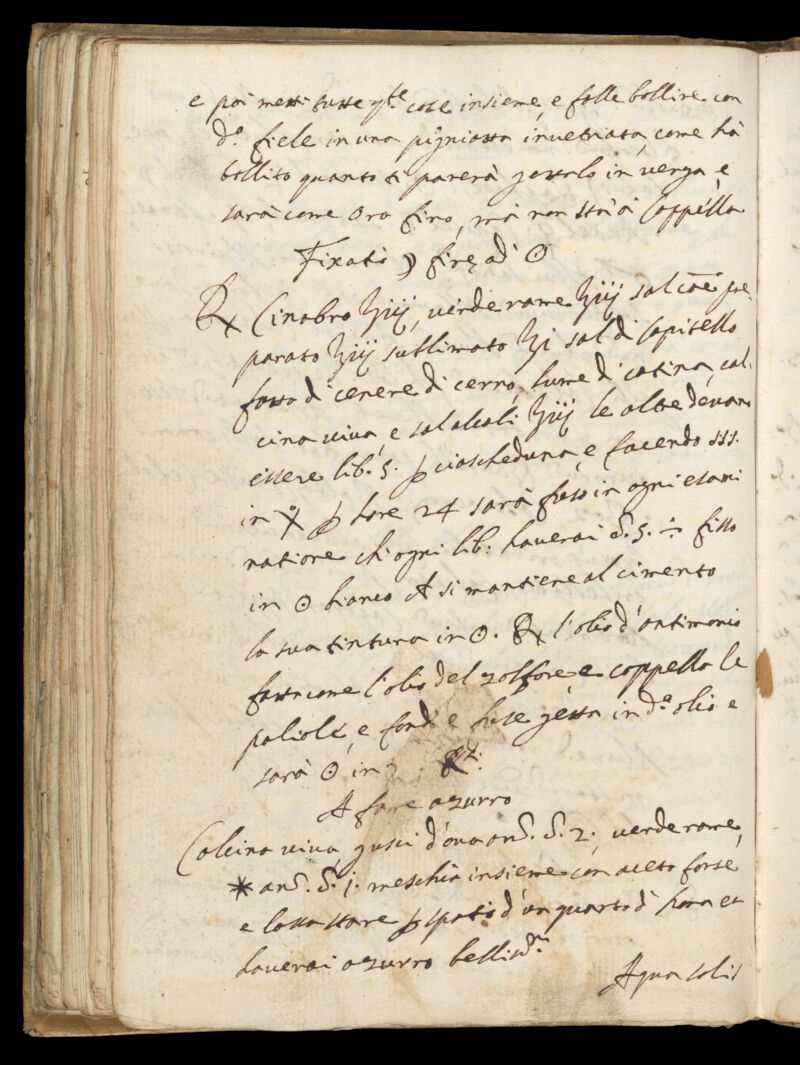 e poi metti tutte q.te cose insieme, e falle bollire con
d.o fiele in una pigniatta invetriata, come hà
bollito quanto ti parerà gettalo in verga, e
sarà come oro fino, mà non stà à Coppella
Fixatio ☽ fix ad ☉
℞ Cinabro ℥iij, verderame ℥iij sal coē pre,
parato ℥iij sublimato ℥j sal di Capitello
fatto di cenere di cerro, lume di catina, cal,
cina viva, e sal alcali ℥iij le altre devano
essere lib. 5. ꝑ ciascheduna, e facendo sss.
in ꝑ hore 24 sarà fuso in ogni esami
natione ch'ogni lib: haverai 5. fisso
in ☉ bianco A si mantiene al cimento
la sua tintura in ☉. ℞ l'olio d'antimonio
fatto come l'olio del zolfore e coppella le
paliole, e fondi e fuse getta in d.o olio e
sarà ☉ in
A fare azurro
Calcina viva, gusci d'ova 2., verderame,
* j. meschia insieme con aceto forte
e lassa stare ꝑ spatio d'un quarto d'hora et
haverai azurro belliss.mo
Aqua solis